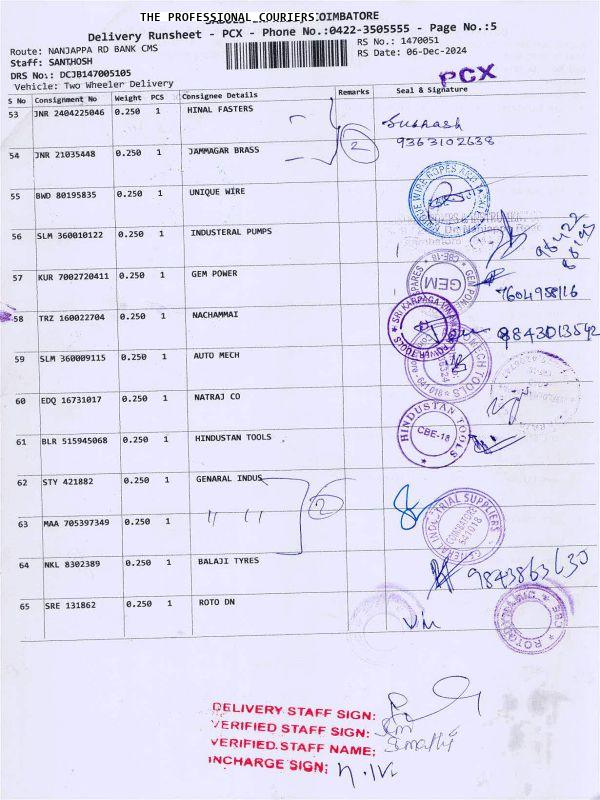 THE PROFESSIONAL COURIERS
COIMBATORE
Delivery Runsheet - PCX - Phone No.:0422-3505555 - Page No.:5
Route: NANJAPPA RD BANK CMS
RS No.: 1470051
Staff: SANTHOSH
RS Date: 06-Dec-2024
DRS No.: DCJB147005105
PCX
Vehicle: Two Wheeler Delivery
S No Consignment No Weight PCS Consignee Details Remarks Seal & Signature
53 JNR 2404225046 0.250 1 HINAL FASTERS
Subhash
9363102638
54 JNR 21035448 0.250 1 JAMMAGAR BRASS 2
55 BWD 80195835 0.250 1 UNIQUE WIRE
56 SLM 360010122 0.250 1 INDUSTERAL PUMPS
57 KUR 7002720411 0.250 1 GEM POWER
GEM
7604958116
58 TRZ 160022704 0.250 1 NACHAMMAI
9843013542
59 SLM 360009115 0.250 1 AUTO MECH
60 EDQ 16731017 0.250 1 NATRAJ CO
61 BLR 515945068 0.250 1 HINDUSTAN TOOLS
HINDUSTAN TOOLS
CBE-18
62 STY 421882 0.250 1 GENARAL INDUS
2
63 MAA 705397349 0.250 1 " "
64 NKL 8302389 0.250 1 BALAJI TYRES
9843863630
65 SRE 131862 0.250 1 ROTO DN
DELIVERY STAFF SIGN:
VERIFIED STAFF SIGN:
VERIFIED STAFF NAME: Sumathi
INCHARGE SIGN: